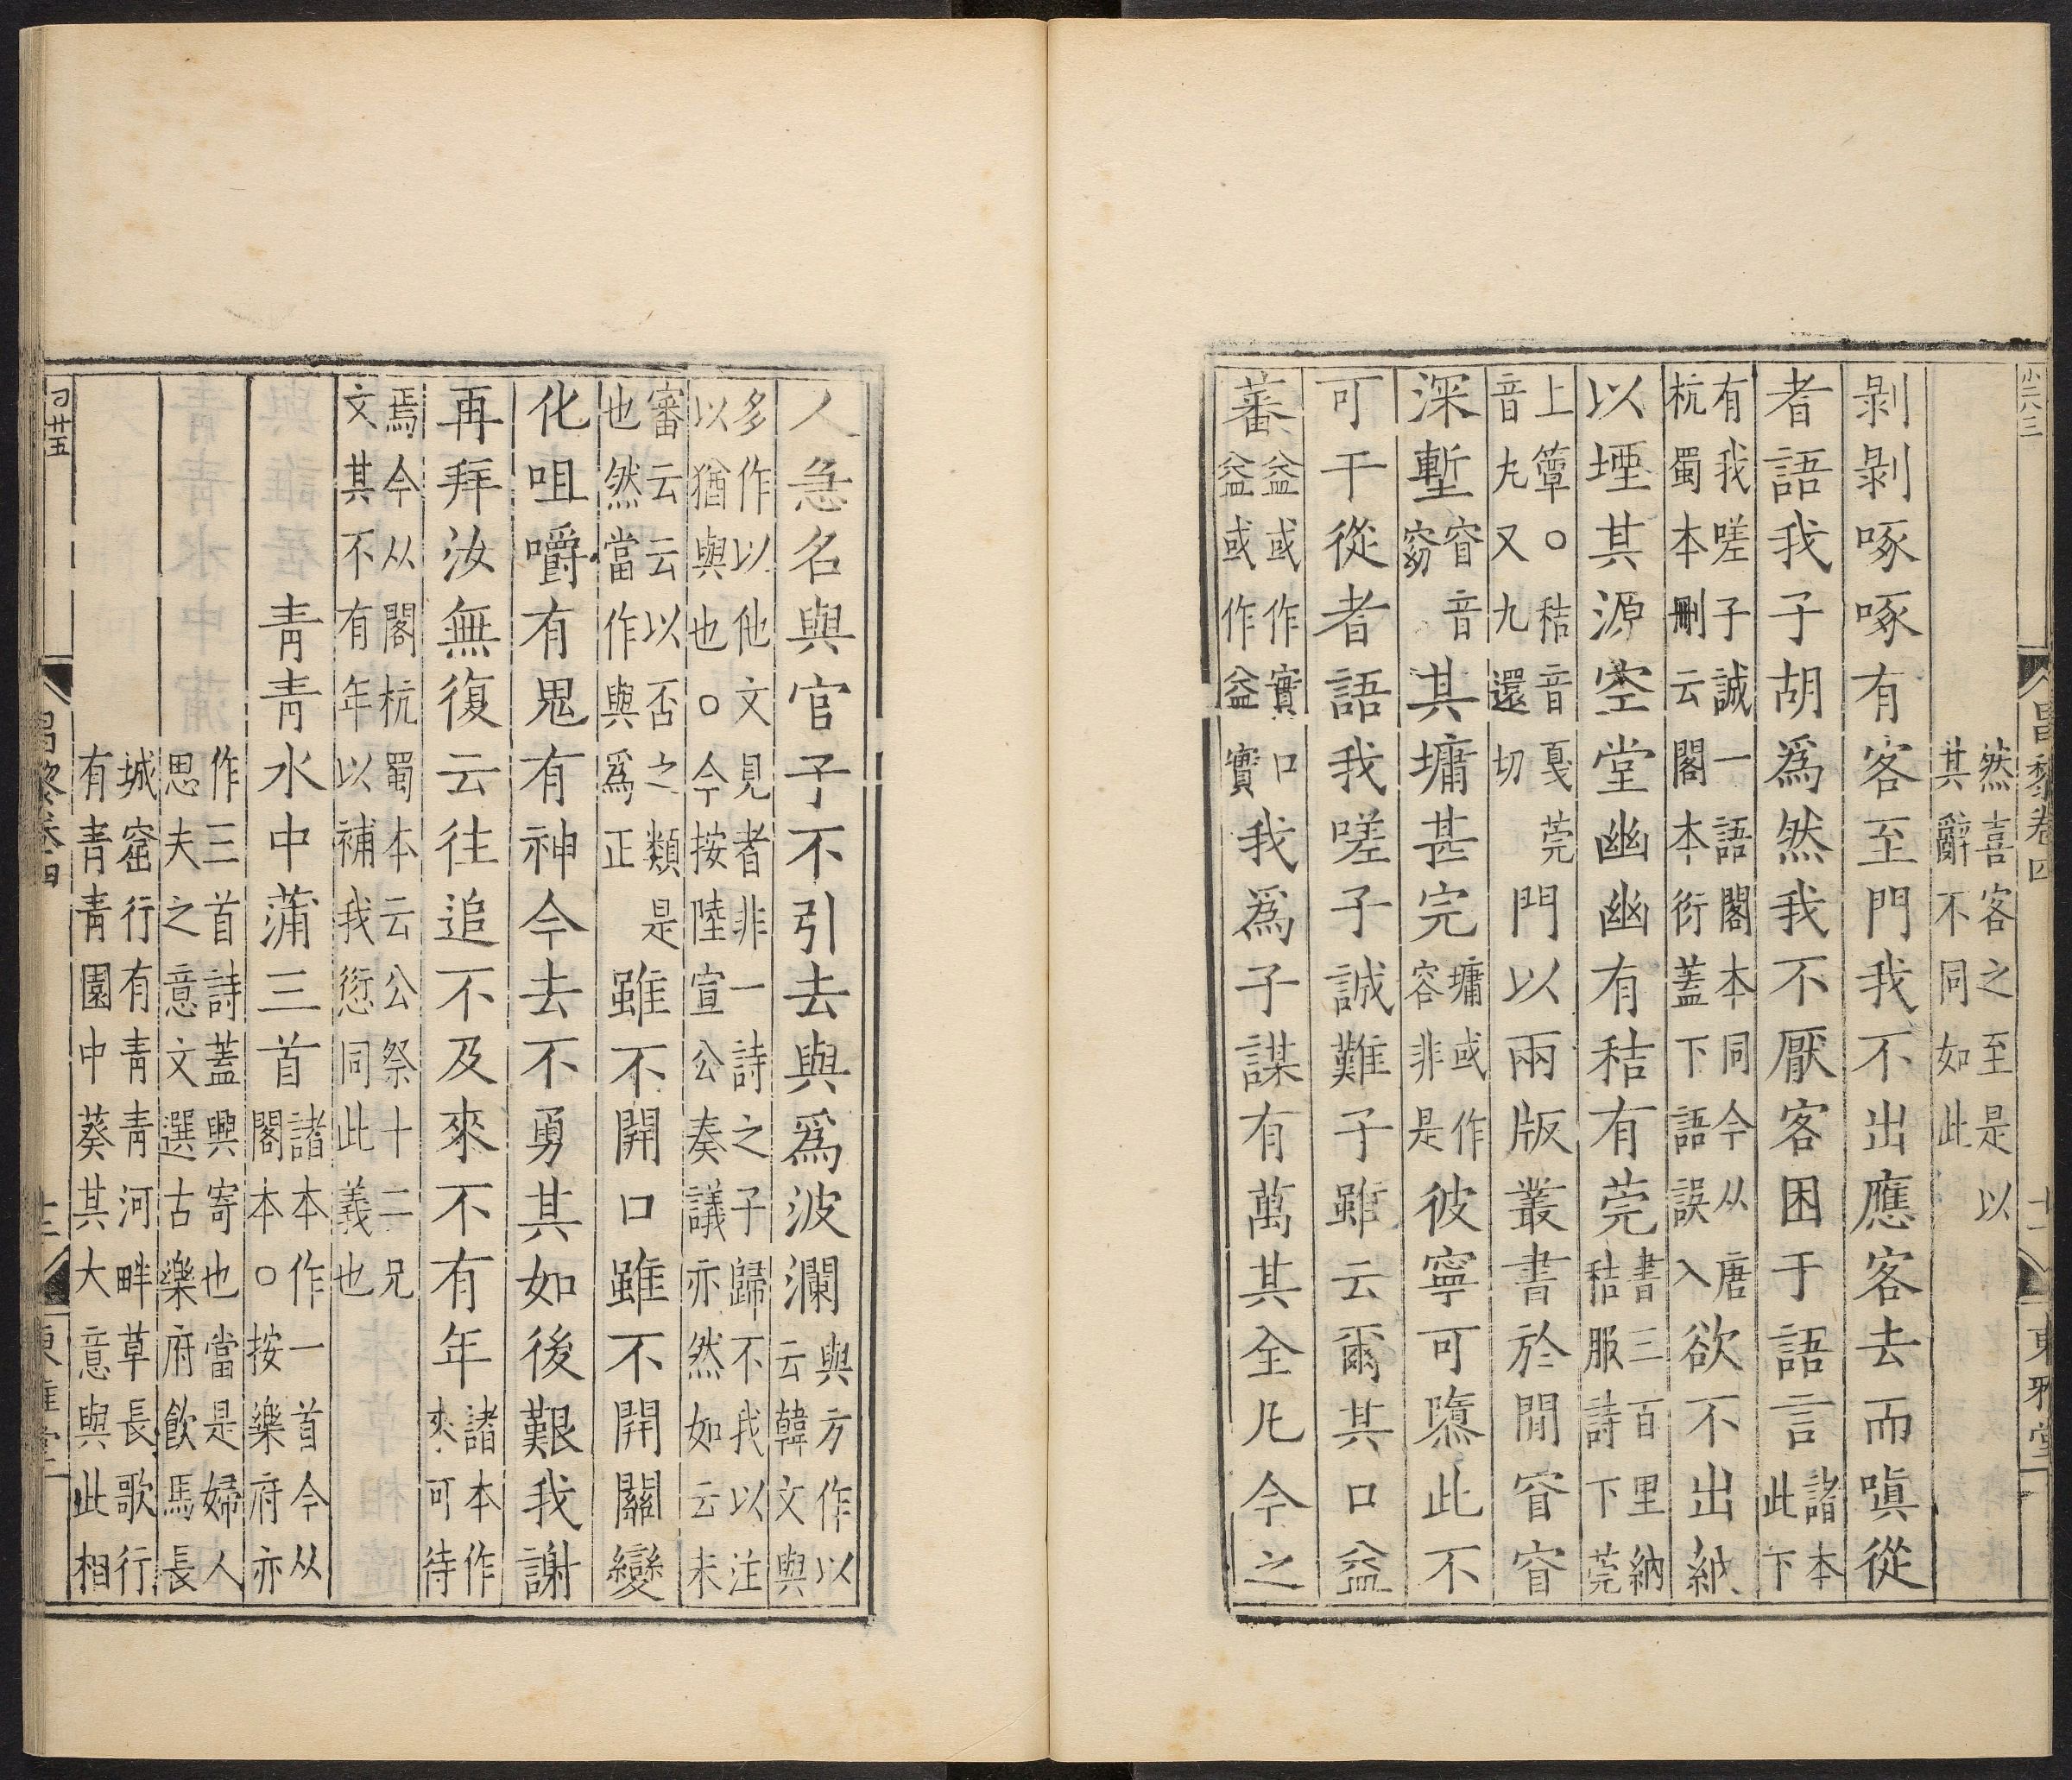 然喜客之至是以
其辭不同如此
剝剝啄啄有客至門我不出應客去而嗔從
者語我子胡爲然我不厭客困于語言諸本
此下
有我嗟子誠一語閣本同今从唐
杭蜀本刪云閣本衍蓋下語誤入欲不出納
以堙其源空堂幽幽有秸有莞書三百里納
秸服詩下莞
上簟○秸音戛莞
音丸又九還切門以兩版叢書於閒窅窅
深塹窅音
窈其墉甚完墉或作
容非是彼寧可隳此不
可干從者語我嗟子誠難子雖云爾其口益
蕃益或作實口
益或作益實我爲子謀有萬其全凡今之
人急名與官子不引去與爲波瀾與方作以
云韓文與
多作以他文見者非一詩之子歸不我以注
以猶與也○今按陸宣公奏議亦然如云未
審云云以否之類是
也然當作與爲正雖不開口雖不開關變
化咀嚼有鬼有神今去不勇其如後艱我謝
再拜汝無復云往追不及來不有年諸本作
來可待
焉今从閣杭蜀本云公祭十二兄
文其不有年以補我愆同此義也
青青水中蒲三首諸本作一首今从
閣本○按樂府亦
作三首詩蓋興寄也當是婦人
思夫之意文選古樂府飲馬長
城窟行有青青河畔草長歌行
有青青園中葵其大意與此相
小六三
昌黎卷四
十一
東雅堂
昌黎卷四
東雅堂